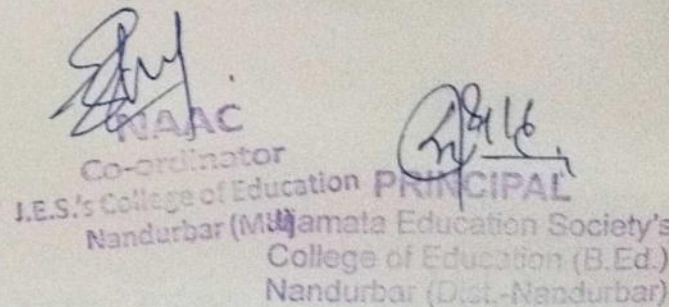 NAAC
Co-ordinator
J.E.S.'s College of Education
Nandurbar
PRINCIPAL
Jijamata Education Society's
College of Education (B.Ed.)
Nandurbar (Dist.-Nandurbar)